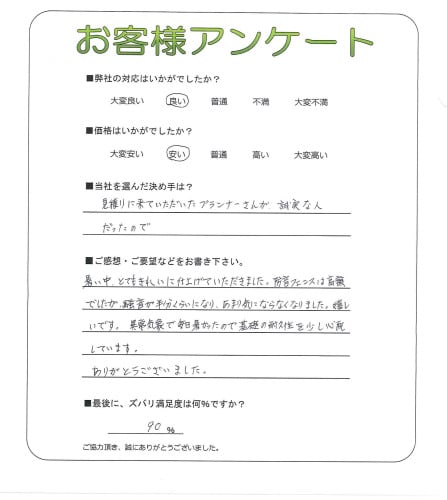 お客様アンケート
■弊社の対応はいかがでしたか？
大変良い 良い 普通 不満 大変不満
■価格はいかがでしたか？
大変安い 安い 普通 高い 大変高い
■当社を選んだ決め手は？
見積りに来ていただいたプランナーさんが 誠実な人
だったので
■ご感想・ご要望などをお書き下さい。
暑い中、とてもきれいに仕上げていただきました。防音フェンスは高額
でしたが、騒音が半分くらいになり、あまり気にならなくなりました。嬉し
いです。異常気象で毎日暑かったので基礎の耐久性を少し心配
しています。
ありがとうございました。
■最後に、ズバリ満足度は何%ですか？
90 %
ご協力頂き、誠にありがとうございました。